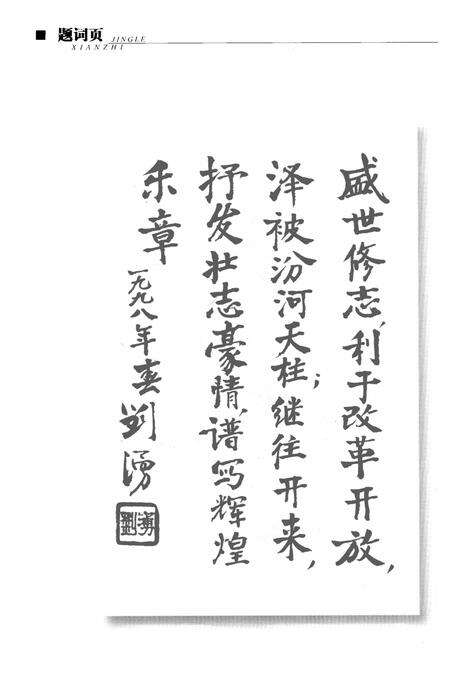 题词页 JINGLE
XIANZHI
盛世修志,利于改革开放,
泽被汾河天柱;继往开来,
抒发壮志豪情,谱写辉煌
乐章
一九九八年春 劉湧